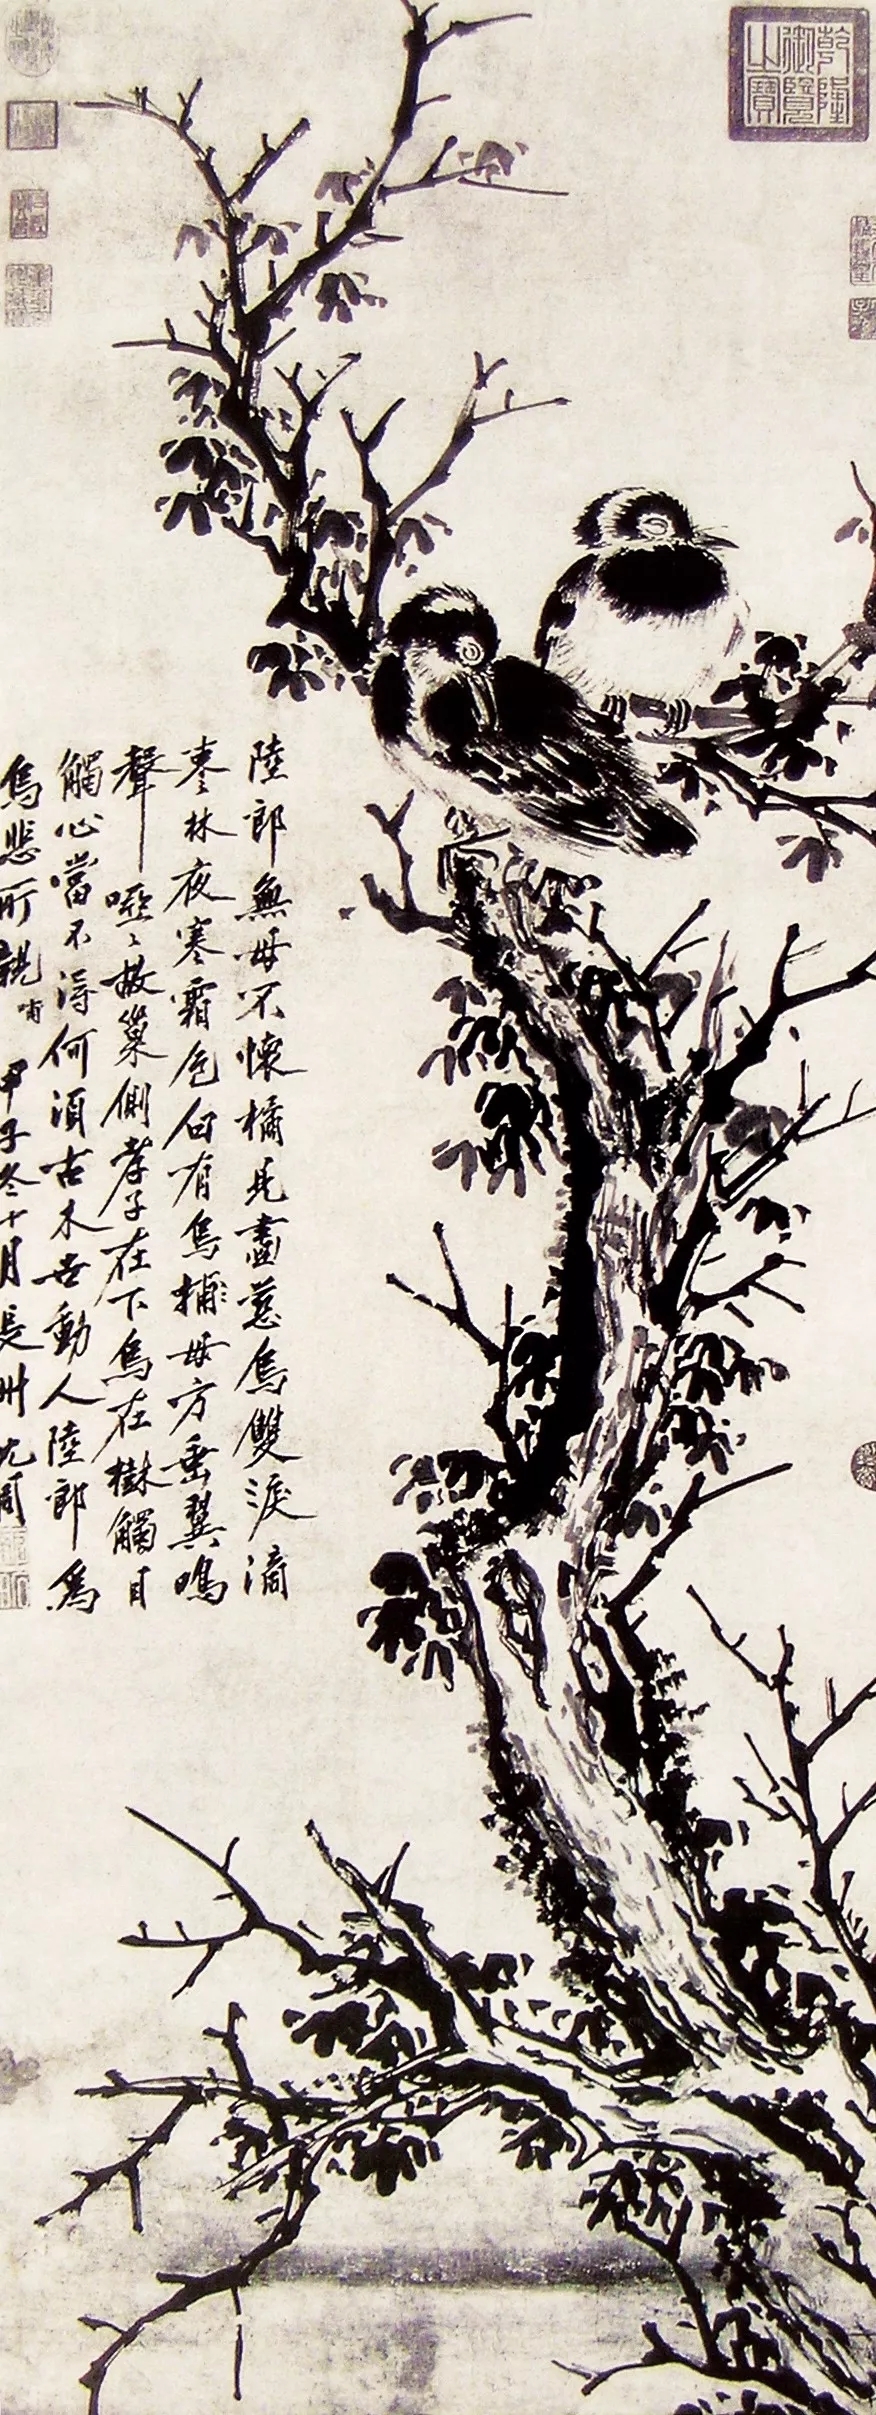 乾隆御覽之寶
陸郎無母不懷橘見畫慈烏雙淚滴
枣林夜寒霜色白有烏捕母方垂翼鳴
聲啞〻故巢側孝子在下烏在樹觸目
觸心當不得何須古木世動人陸郎為
烏悲所親哺甲子冬十月長州沈周